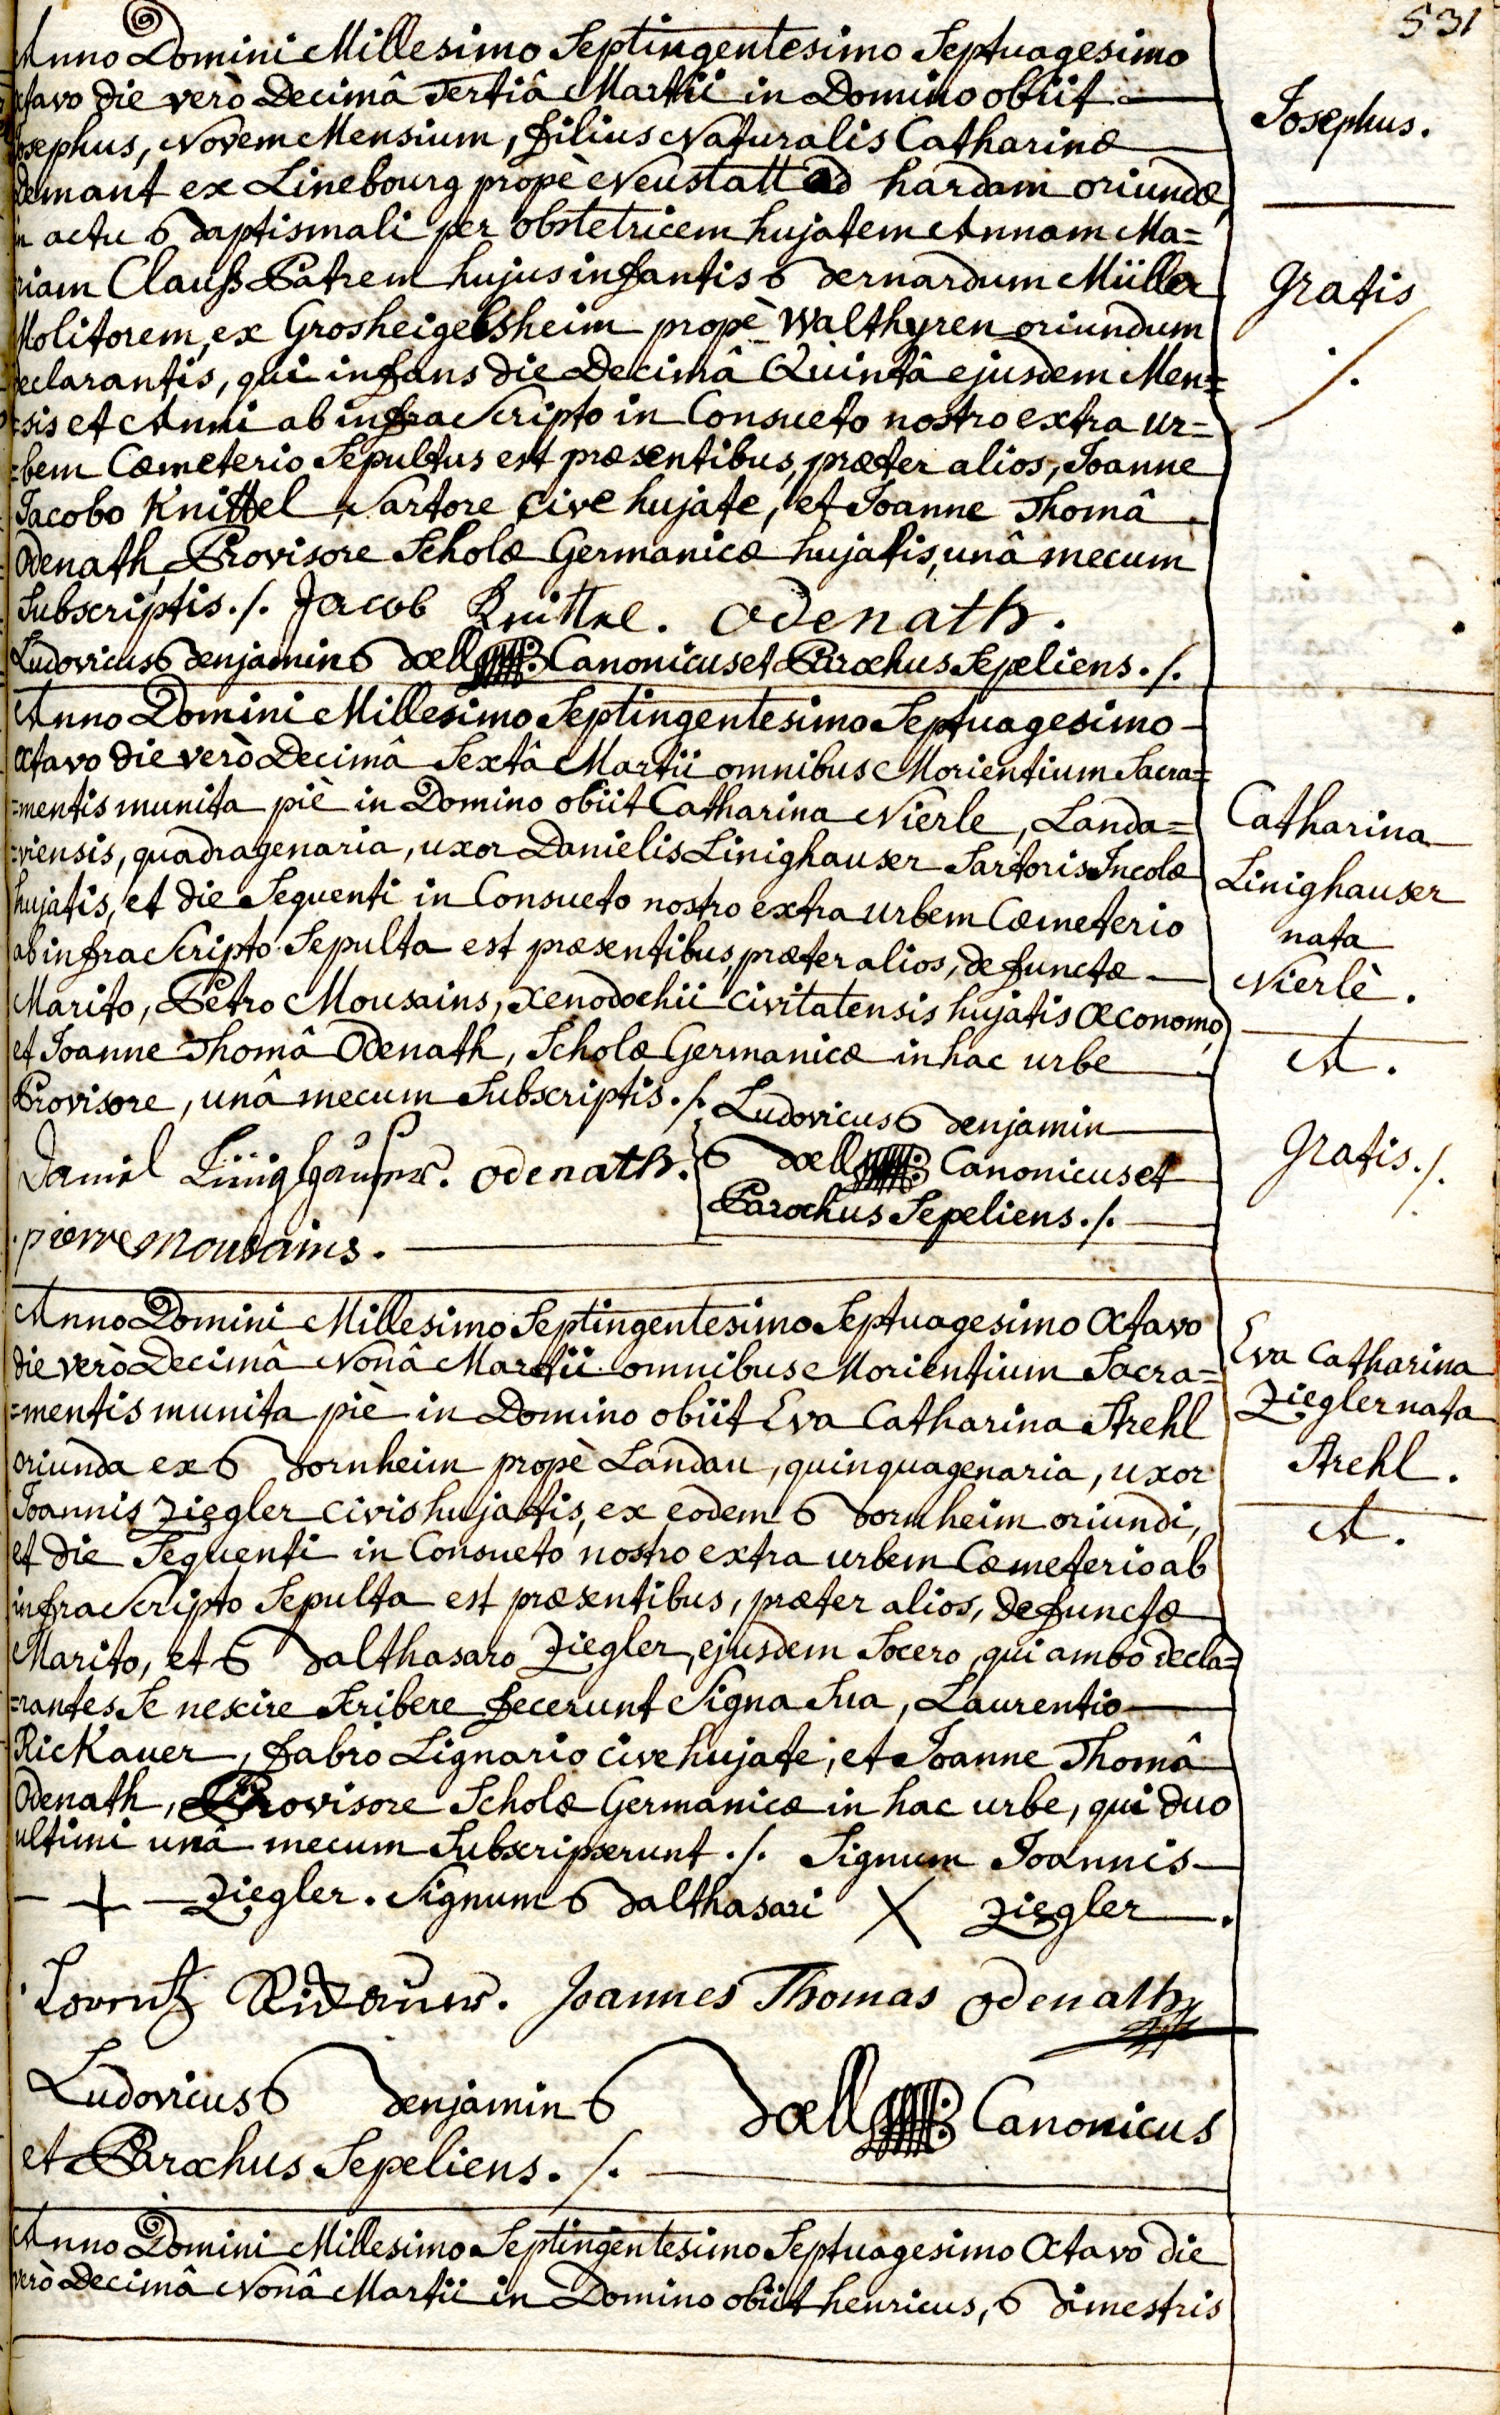 531
Anno Domini Millesimo Septingentesimo Septuagesimo
octavo die verò Decimâ Tertiâ Martii in Domino obiit
Josephus, Novem Mensium, filius Naturalis Catharinæ
demant ex Linebourg propè Neustatt ad hardam oriundæ,
in actu Baptismali per obstetricem hujatem Annam Ma=
riam Clauß Patrem hujus infantis Bernardum Müller
Molitorem, ex Grosheigelsheim propè Walthyren oriundum
declarantis, qui infans die Decimâ Quintâ ejusdem Men=
=sis et Anni ab infra Scripto in Consueto nostro extra ur=
=bem Cœmeterio Sepultus est præsentibus, præter alios, Joanne
Jacobo Knittel, Sartore cive hujate, et Joanne Thomâ
Odenath, Provisore Scholæ Germanicæ hujatis, unâ mecum
Subscriptis ./. Jacob Knittel. Odenath.
Ludovicus Benjamin Boell Canonicus et Parochus Sepeliens ./.
Josephus.
Gratis
./.
Anno Domini Millesimo Septingentesimo Septuagesimo
octavo die verò Decimâ Sextâ Martii omnibus Morientium Sacra=
=mentis munita piè in Domino obiit Catharina Nierle, Landa=
=viensis, quadragenaria, uxor Danielis Linighauser Sartoris Incolæ
hujatis, et die Sequenti in Consueto nostro extra urbem Cœmeterio
ab infra Scripto Sepulta est præsentibus, præter alios, defunctæ
Marito, Petro Mousains, Xenodochii civitatensis hujatis Œconomo,
et Joanne Thomâ Odenath, Scholæ Germanicæ in hac urbe
Provisore, unâ mecum Subscriptis ./. Ludovicus Benjamin
Daniel Linighauser. Odenath. Boell Canonicus et
Parochus Sepeliens ./.
pierre mousains.
Catharina
Linighauser
nata
Nierlè.
A.
Gratis ./.
Anno Domini Millesimo Septingentesimo Septuagesimo Octavo
die verò Decimâ Nonâ Martii omnibus Morientium Sacra=
=mentis munita piè in Domino obiit Eva Catharina Strehl
oriunda ex Bornheim propè Landau, quinquagenaria, uxor
Joannis Ziegler civis hujatis, ex eodem Bornheim oriundi,
et die Sequenti in Consueto nostro extra urbem Cœmeterio ab
infra Scripto Sepulta est præsentibus, præter alios, defunctæ
Marito, et Balthasaro Ziegler, ejusdem Socero, qui ambo decla=
=rantes Se nescire Scribere fecerunt Signa Sua, Laurentio
Rickauer, fabro Lignario cive hujate, et Joanne Thomâ
Odenath, Provisore Scholæ Germanicæ in hac urbe, qui duo
ultimi unâ mecum Subscripserunt ./. Signum Joannis
+ Ziegler. Signum Balthasari X Ziegler.
Lorentz Rickauer. Joannes Thomas Odenath
Ludovicus Benjamin Boell Canonicus
et Parochus Sepeliens ./.
Eva Catharina
Ziegler nata
Strehl.
A.
Anno Domini Millesimo Septingentesimo Septuagesimo Octavo die
verò Decimâ Nonâ Martii in Domino obiit henricus, Bimestris